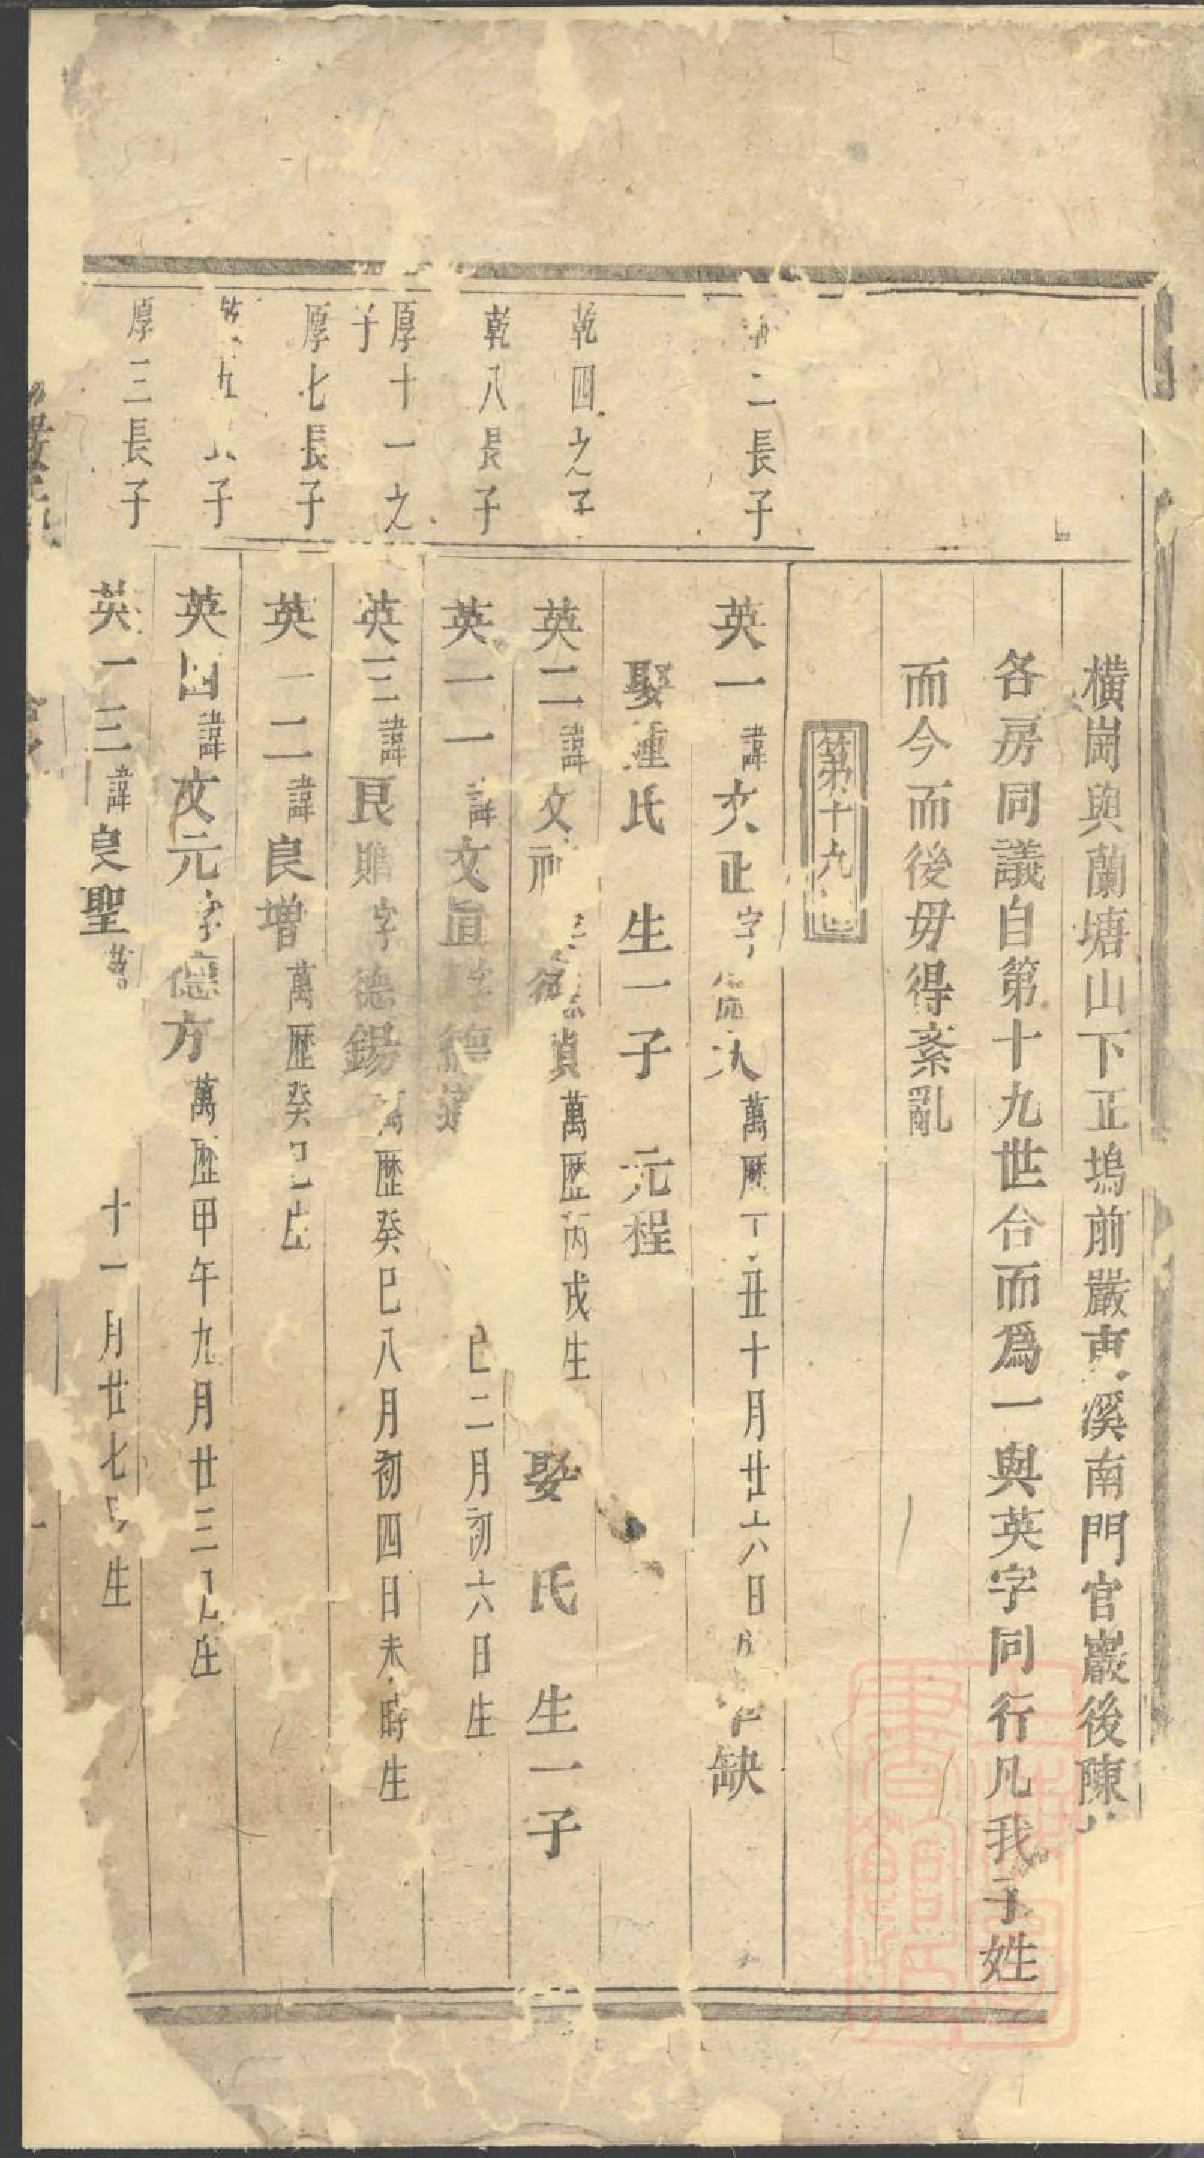 橫崗與蘭塘山下正塢前嚴東溪南門官巖後陳
各房同議自第十九世合而爲一與英字同行凡我子姓
而今而後毋得紊亂
第十九世
二長子
英一諱文正字 萬歷丁丑十月廿六日 缺
娶鍾氏 生一子 元程
乾四之子
英二諱文 貞萬歷丙戌生 娶 氏 生一子
乾八長子
英一一諱文 字德 巳二月初六日生
厚十一之子
英三諱良 字德錫萬歷癸巳八月初四日未時生
厚七長子
英一二諱良增萬歷癸巳生
九長子
英四諱文元字德方萬歷甲午九月廿三日生
厚三長子
英一三諱良聖萬 十一月廿七日生